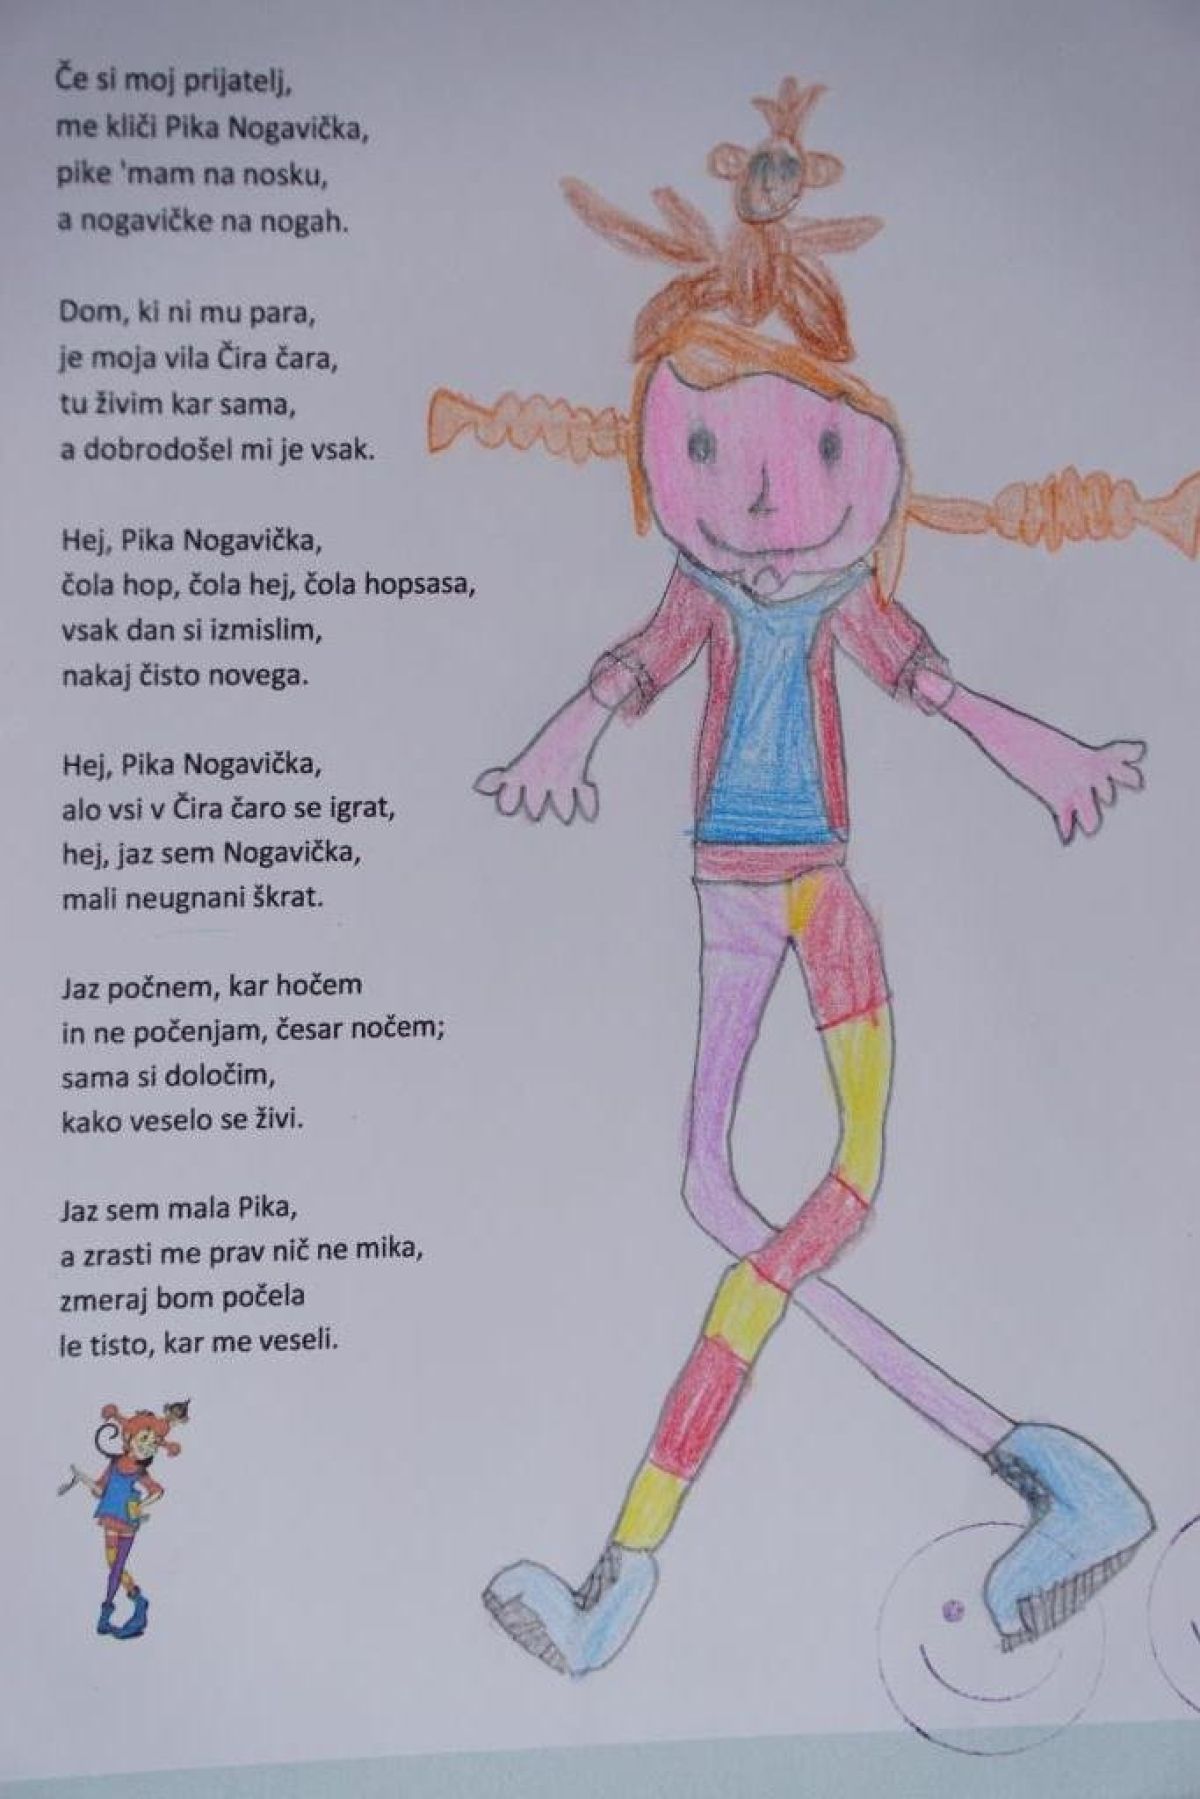 Če si moj prijatelj,
me kliči Pika Nogavička,
pike 'mam na nosku,
a nogavičke na nogah.

Dom, ki ni mu para,
je moja vila Čira čara,
tu živim kar sama,
a dobrodošel mi je vsak.

Hej, Pika Nogavička,
čola hop, čola hej, čola hopsasa,
vsak dan si izmislim,
nakaj čisto novega.

Hej, Pika Nogavička,
alo vsi v Čira čaro se igrat,
hej, jaz sem Nogavička,
mali neugnani škrat.

Jaz počnem, kar hočem
in ne počenjam, česar nočem;
sama si določim,
kako veselo se živi.

Jaz sem mala Pika,
a zrasti me prav nič ne mika,
zmeraj bom počela
le tisto, kar me veseli.